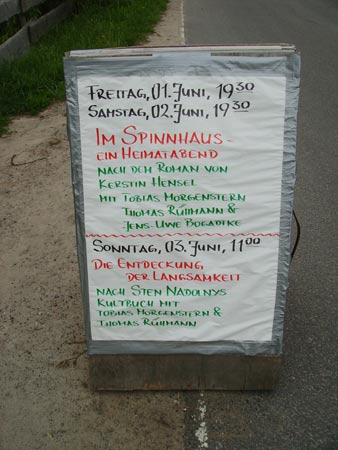 FREITAG, 01. JUNI, 19 30
SAMSTAG, 02. JUNI, 19 30
IM SPINNHAUS -
EIN HEIMATABEND
NACH DEM ROMAN VON
KERSTIN HENSEL
MIT TOBIAS MORGENSTERN
THOMAS RÜHMANN &
JENS-UWE BOGADTKE
SONNTAG, 03. JUNI, 11 00
DIE ENTDECKUNG
DER LANGSAMKEIT
NACH STEN NADOLNYS
KULTBUCH MIT
TOBIAS MORGENSTERN &
THOMAS RÜHMANN